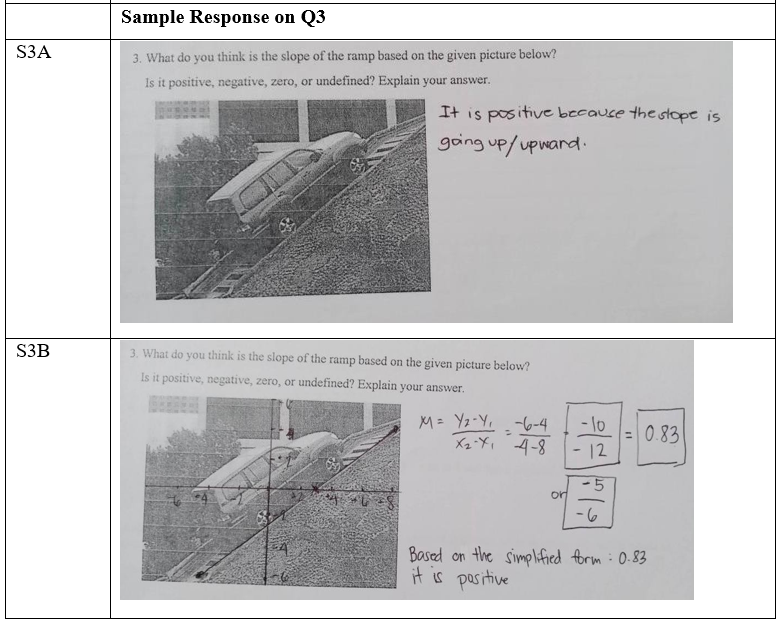 Sample Response on Q3
S3A
3. What do you think is the slope of the ramp based on the given picture below?
Is it positive, negative, zero, or undefined? Explain your answer.
It is positive because the slope is
going up/upward.
S3B
3. What do you think is the slope of the ramp based on the given picture below?
Is it positive, negative, zero, or undefined? Explain your answer.
M = Y₂-Y₁ / X₂-X₁ = -6-4 / -4-8 = -10 / -12 = 0.83
or -5 / -6
Based on the simplified form : 0.83
it is positive